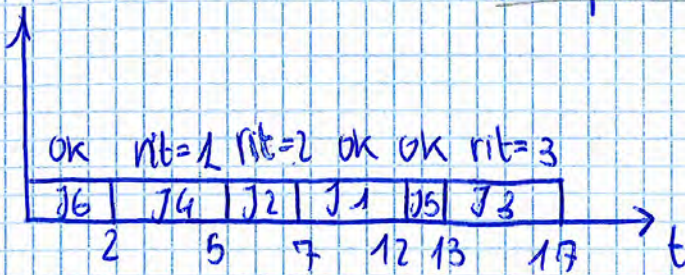 ok rit=1 rit=2 ok ok rit=3
J6 J4 J2 J1 J5 J3
2 5 7 12 13 17 t